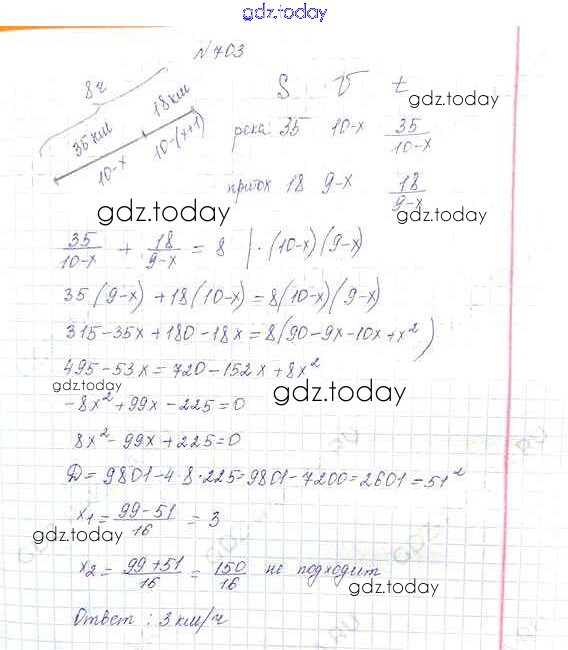 gdz.today
N 703
8ч
35 км 18 км
10-x 10-(x+1)
S V t
gdz.today
река 35 10-x 35/10-x
приток 18 9-x 18/9-x
gdz.today gdz.today
35/10-x + 18/9-x = 8 | ·(10-x)(9-x)
35(9-x)+18(10-x)=8(10-x)(9-x)
315-35x+180-18x=8(90-9x-10x+x²)
495-53x=720-152x+8x²
gdz.today gdz.today
-8x²+99x-225=0
8x²-99x+225=0
D=9801-4·8·225=9801-7200=2601=51²
x₁=99-51/16=3
gdz.today gdz.today
x₂=99+51/16=150/16 не подходит
gdz.today
Ответ: 3 км/ч